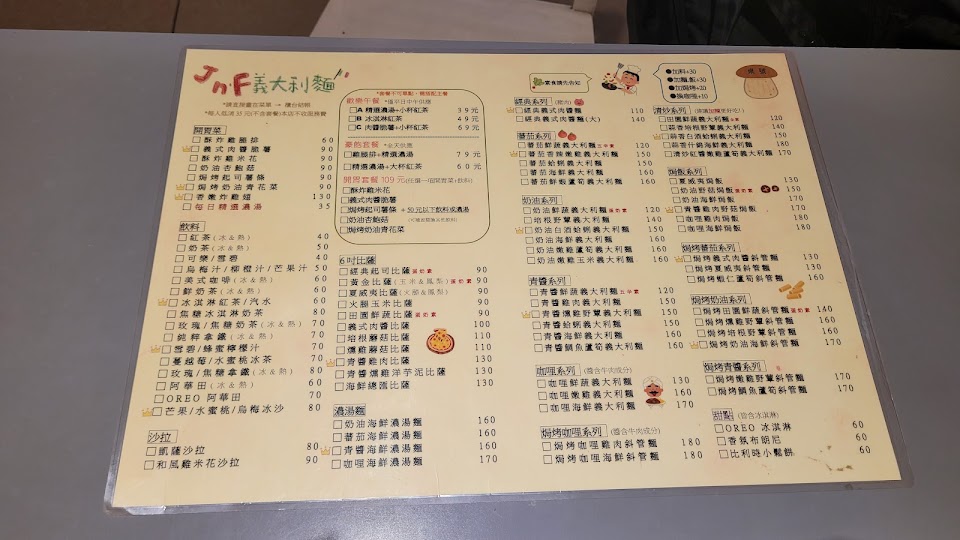 JnF義大利麵
*請直接畫店菜單 → 櫃台結帳
開胃菜
酥炸雞腿排 60
義式肉醬脆薯 90
酥炸雞米花 90
奶油杏鮑菇 90
焗烤起司薯條 90
焗烤奶油青花菜 90
香嫩炸雞翅 130
每日精選濃湯 35
飲料
紅茶(冰&熱) 40
奶茶(冰&熱) 50
可樂/雪碧 40
烏梅汁/柳橙汁/芒果汁 50
美式咖啡(冰&熱) 60
鮮奶茶(冰&熱)
冰淇淋紅茶/汽水
焦糖冰淇淋奶茶
玫瑰/焦糖奶茶(冰&熱)
純粹拿鐵(冰&熱) 70
雪碧/蜂蜜檸檬汁 70
蔓越莓/水蜜桃冰茶 70
玫瑰/焦糖拿鐵(冰&熱) 80
阿華田(冰&熱) 60
OREO 阿華田 70
芒果/水蜜桃/烏梅冰沙 80
沙拉
凱薩沙拉 80
和風雞米花沙拉 90
*套餐不可單點,需搭配主餐
歡樂午餐 *僅平日中午供應
A 精選濃湯+小杯紅茶 39元
B 冰淇淋紅茶 49元
C 肉醬脆薯+小杯紅茶 69元
豪飽套餐 *全天供應
雞腿排+精選濃湯 79元
精選濃湯+大杯紅茶 60元
開胃套餐 109元(任選一項開胃菜+飲料)
酥炸雞米花
義式肉醬脆薯
焗烤起司薯條 +50元以下飲料或濃湯
奶油杏鮑菇
焗烤奶油青花菜
6吋比薩
經典起司比薩 蛋奶素 90
黃金比薩(玉米&鳳梨)蛋奶素 90
夏威夷比薩(火腿&鳳梨) 90
火腿玉米比薩 90
田園鮮蔬比薩 蛋奶素 90
義式肉醬比薩 110
培根蘑菇比薩 110
燻雞蘑菇比薩 110
青醬雞肉比薩 130
青醬燻雞洋芋泥比薩 130
海鮮總滙比薩 130
濃湯麵
奶油海鮮濃湯麵 160
蕃茄海鮮濃湯麵 160
青醬海鮮濃湯麵 160
咖哩海鮮濃湯麵 170
素食請先告知
●加料+30
●加麵.飯+30
●加焗烤+20
●換咖哩+10
桌號
經典系列 (豬肉)
經典義式肉醬麵 110
經典義式肉醬麵(大) 140
蕃茄系列
蕃茄鮮蔬義大利麵 五辛素 130
蕃茄香辣嫩雞義大利麵
蕃茄蛤蜊義大利麵
蕃茄海鮮義大利麵 160
蕃茄鮮蝦蘆筍義大利麵 170
奶油系列
奶油鮮蔬義大利麵 蛋奶素 130
培根野蕈義大利麵 140
奶油白酒蛤蜊義大利麵
奶油海鮮義大利麵 160
奶油燻雞蘆筍義大利麵
奶油嫩雞玉米義大利麵
青醬系列
青醬鮮蔬義大利麵 五辛素
青醬雞肉義大利麵
青醬燻雞義大利麵
青醬蛤蜊義大利麵
青醬海鮮義大利麵 160
青醬鯛魚蘆筍義大利麵 160
咖哩系列 (醬含牛肉成分)
咖哩鮮蔬義大利麵 130
咖哩嫩雞義大利麵 160
咖哩海鮮義大利麵 170
焗烤咖哩系列 (醬含牛肉成分)
焗烤咖哩雞肉斜管麵 180
焗烤咖哩海鮮斜管麵 180
清炒系列
田園鮮蔬義大利麵 120
蒜香培根野蕈義大利麵 140
蒜香白酒蛤蜊義大利麵
蒜香什錦海鮮義大利麵
清炒紅醬嫩雞蘆筍義大利麵 170
焗飯系列
夏威夷焗飯 130
奶油野菇焗飯 蛋奶素
奶油海鮮焗飯
青醬雞肉野菇焗飯
咖哩雞肉焗飯 180
咖哩海鮮焗飯 180
焗烤蕃茄系列
焗烤義式肉醬斜管麵
焗烤夏威夷斜管麵
焗烤蝦仁蘆筍斜管麵 160
焗烤奶油系列
焗烤田園鮮蔬斜管麵 蛋奶素
焗烤燻雞野蕈斜管麵 160
焗烤培根野蕈斜管麵 160
焗烤奶油海鮮斜管麵 160
焗烤青醬系列
焗烤嫩雞野蕈斜管麵 160
焗烤鯛魚蘆筍斜管麵 160
甜點 (皆含冰淇淋)
OREO 冰淇淋 60
香氛布朗尼 60
比利時小鬆餅 60